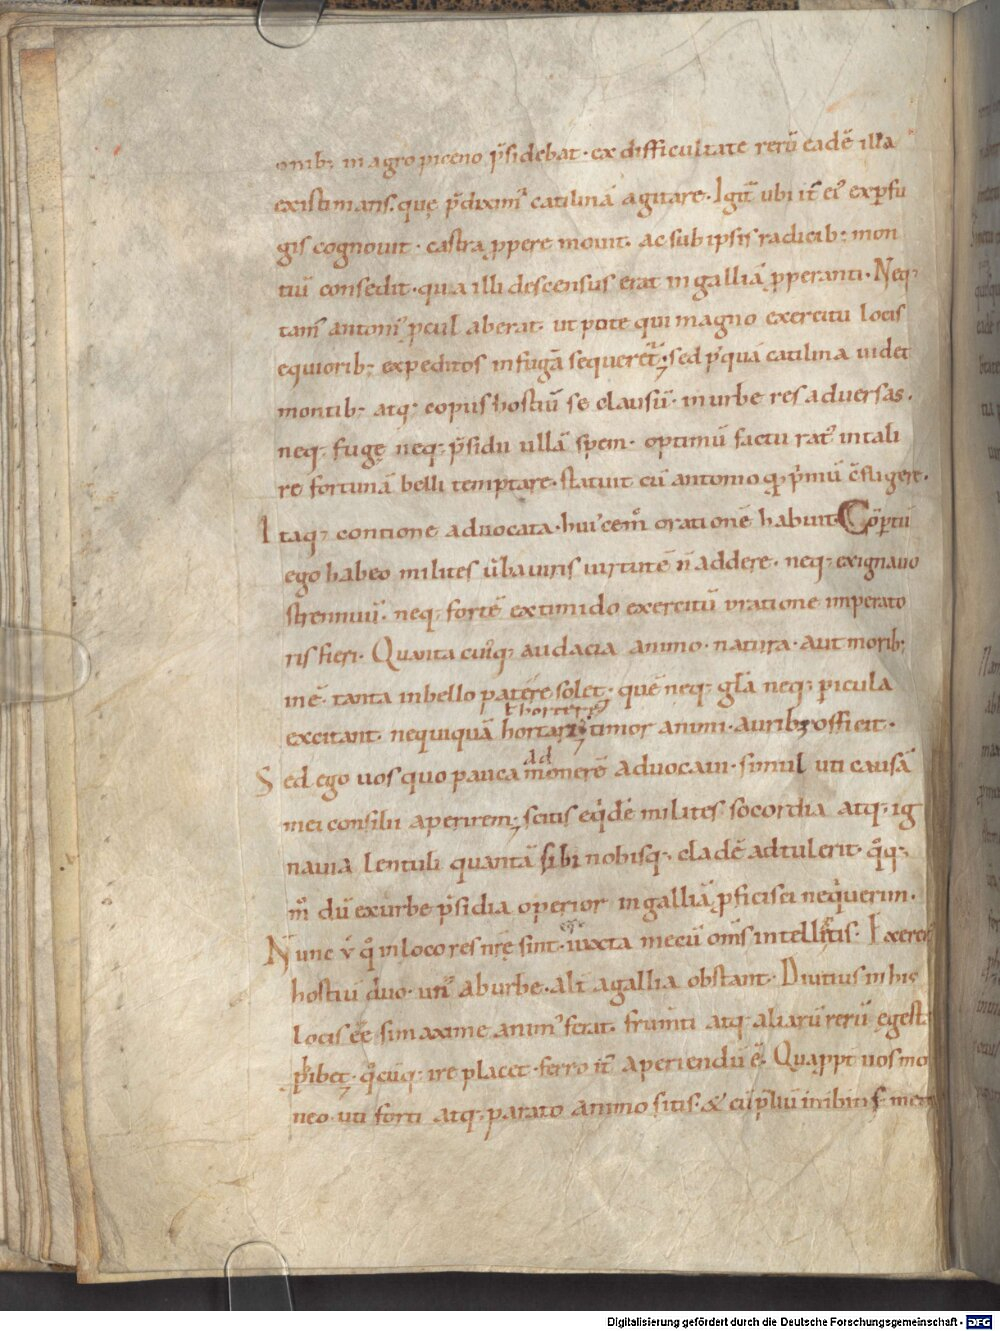 onib; in agro piceno p̄sidebat · ex difficultate rerū eadē illa
existimans. quę p̄diximꝰ catilinā agitare · Igit̄ ubi it̄ eiꝰ ex ꝑfu
gis cognouit · castra ꝓpere mouit. ac sub ipsis radicib; mon
tiū consedit · qua illi descensus erat in galliā ꝓperanti · Neq;
tam̄ antoniꝰ ꝓcul aberat. ut pote qui magno exercitu locis
equiorib; expeditos in fugā sequeret᷑; sed p̄quā catilina uidet
montib; atq; copiis hostiū se clausū · in urbe res aduersas .
neq; fugę neq; p̄sidii ullā spem · optimū factu ratꝰ in tali
re fortunā belli temptare · statuit cū antonio q̄ p̄mū c̄fligere .
Itaq; contione aduocata · huiꝰcem̄ orationē habuit · Cōꝑtū
ego habeo milites ūba uiris uirtutē n̄ addere · neq; ex ignauo
strennuū · neq; fortē ex timido exercitū oratione imperato
ris fieri · Quanta cuiꝰq; audacia animo · natura · aut morib;
inē · tanta in bello patere solet · quē neq; gl̄a neq; ꝑicula
excitant. nequiquā hortaris timor animi · aurib; officit .
ł horteris
Sed ego uos quo pauca monerē aduocaui · simul uti causā
ad
mei consilii aperirem; scitis eq̇dē milites socordia atq; ig
nauia lentuli quantā sibi nobisq; cladē adtulerit · q̄q;
m̄ dū ex urbe p̄sidia operior in galliā ꝓficisci neq̇uerim .
Nunc v̄ q̄ in loco res nr̄ę sint · iuxta mecū om̄s intellegitis · Exerci
hostiū duo · unꝰ ab urbe · alt̄ a gallia obstant · Diutius in his
locis eē̄ si maxime animꝰ ferat. frum̄ti atq; aliarū rerū ęgest
ꝓhibet; q̄cūq; ire placet · ferro it̄ aperiendū ē · Quapp̄t uos mo
neo · uti forti atq; parato animo sitis · & cū p̄liū inibitis mem